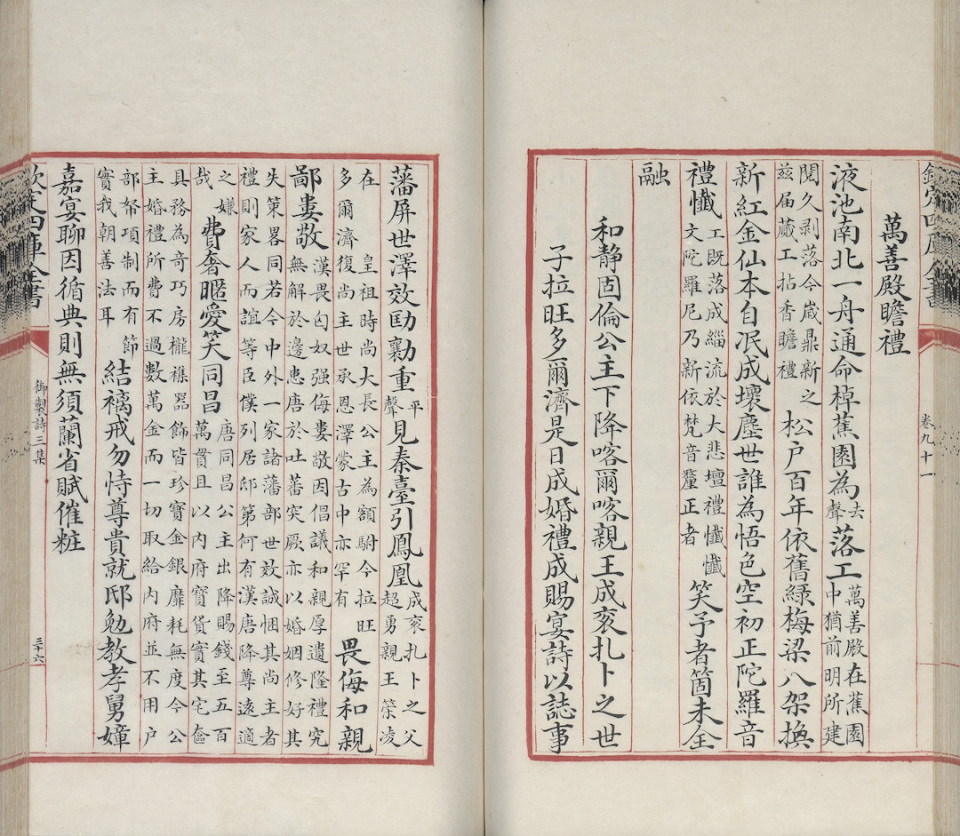 欽定四庫全書
卷九十一
萬善殿瞻禮
液池南北一舟通命棹蕉園為去聲落工萬善殿在蕉園中猶前明所建
閱久剥落今歲鼎新之兹届蕆工拈香瞻禮松户百年依舊緑梅梁八架換
新紅金仙本自泯成壞塵世誰為悟色空初正陀羅音
禮懺工既落成緇流於大悲壇禮懺懺文陀羅尼乃新依梵音釐正者笑予者箇未全
融
和静固倫公主下降喀爾喀親王成衮扎卜之世
子拉旺多爾濟是日成婚禮成賜宴詩以誌事
藩屏世澤效劻勷重平聲見秦臺引鳳凰成衮扎卜之父超勇親王策凌
在皇祖時尚大長公主為額駙今拉旺多爾濟復尚主世承恩澤蒙古中亦罕有畏侮和親
鄙婁敬漢畏匈奴强侮婁敬因倡議和親厚遺隆禮究無解於邊患唐於吐蕃突厥亦以婚姻修好其
失策畧同若今中外一家諸藩部世效誠悃其尚主者禮則家人而誼等臣僕列居邸第何有漢唐降尊遠適
之嫌哉費奢暱愛笑同昌唐同昌公主出降賜錢至五百萬貫且以内府寳貨實其宅奩
具務為奇巧房櫳襍器飾皆珍寳金銀靡耗無度今公主婚禮所費不過數萬金而一切取給内府並不用户
部帑項制而有節實我朝善法耳結褵戒勿恃尊貴就邸勉教孝舅嫜
嘉宴聊因循典則無須蘭省賦催粧
欽定四庫全書
御製詩三集
三十六